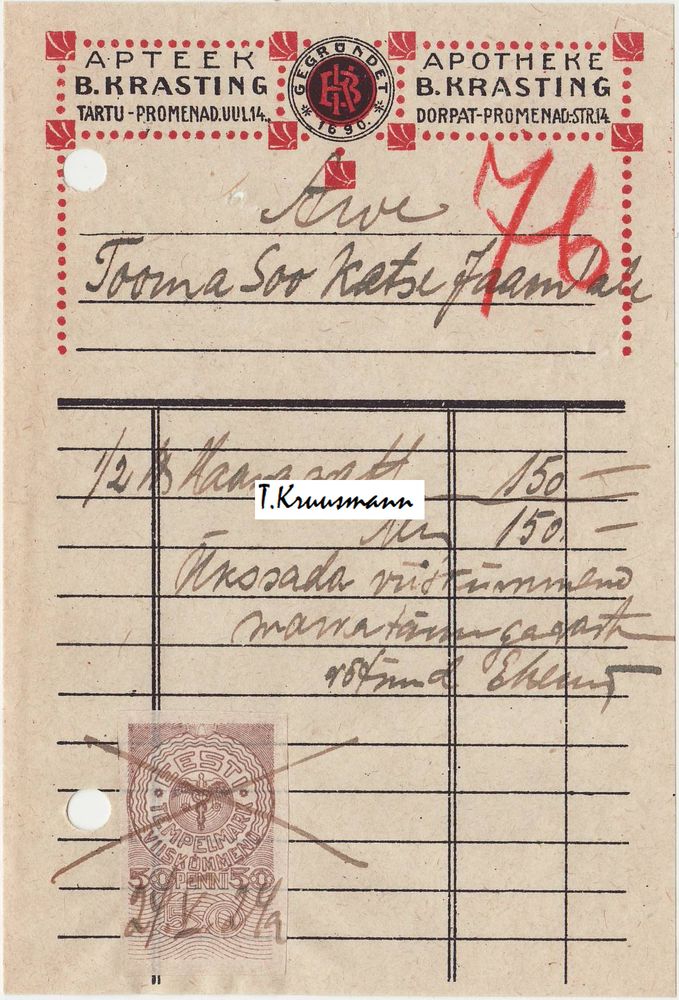 APTEEK
B. KRASTING
TARTU - PROMENAD. UUL. 14.
GEGRÜNDET
1690.
APOTHEKE
B. KRASTING
DORPAT-PROMENAD-STR. 14
Arve
76
Tooma Soo Katse Jaamale
1/2 150 —
T.Kruusmann
150. —
Ükssada viiskümmend
marka
EESTI
TEMPELMARK
VIISKÜMMEND
50 PENNI 50
50